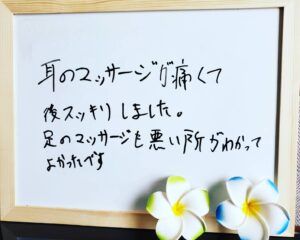 耳のマッサージが痛くて
後スッキリしました。
足のマッサージも悪い所がわかって
よかったです